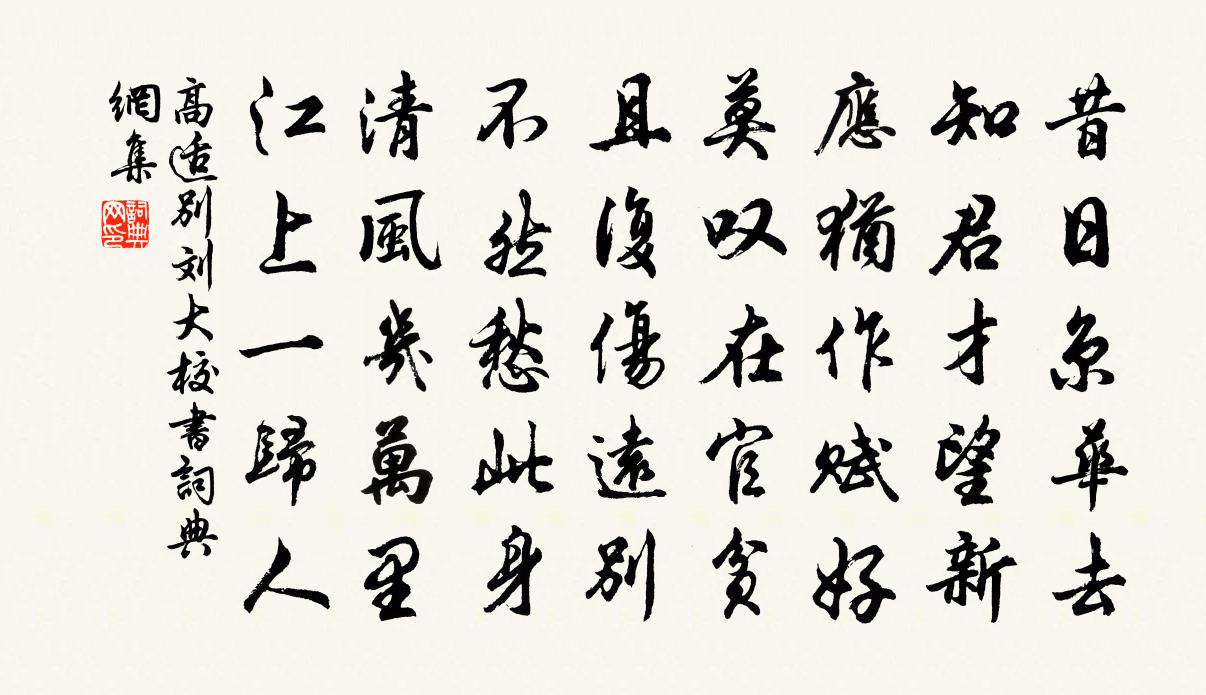 昔日京華去
知君才望新
應猶作賦好
莫叹在官貧
且復傷遠別
不然愁此身
清風幾萬里
江上一歸人
高适別刘大校書詞典
網集
詞典網印